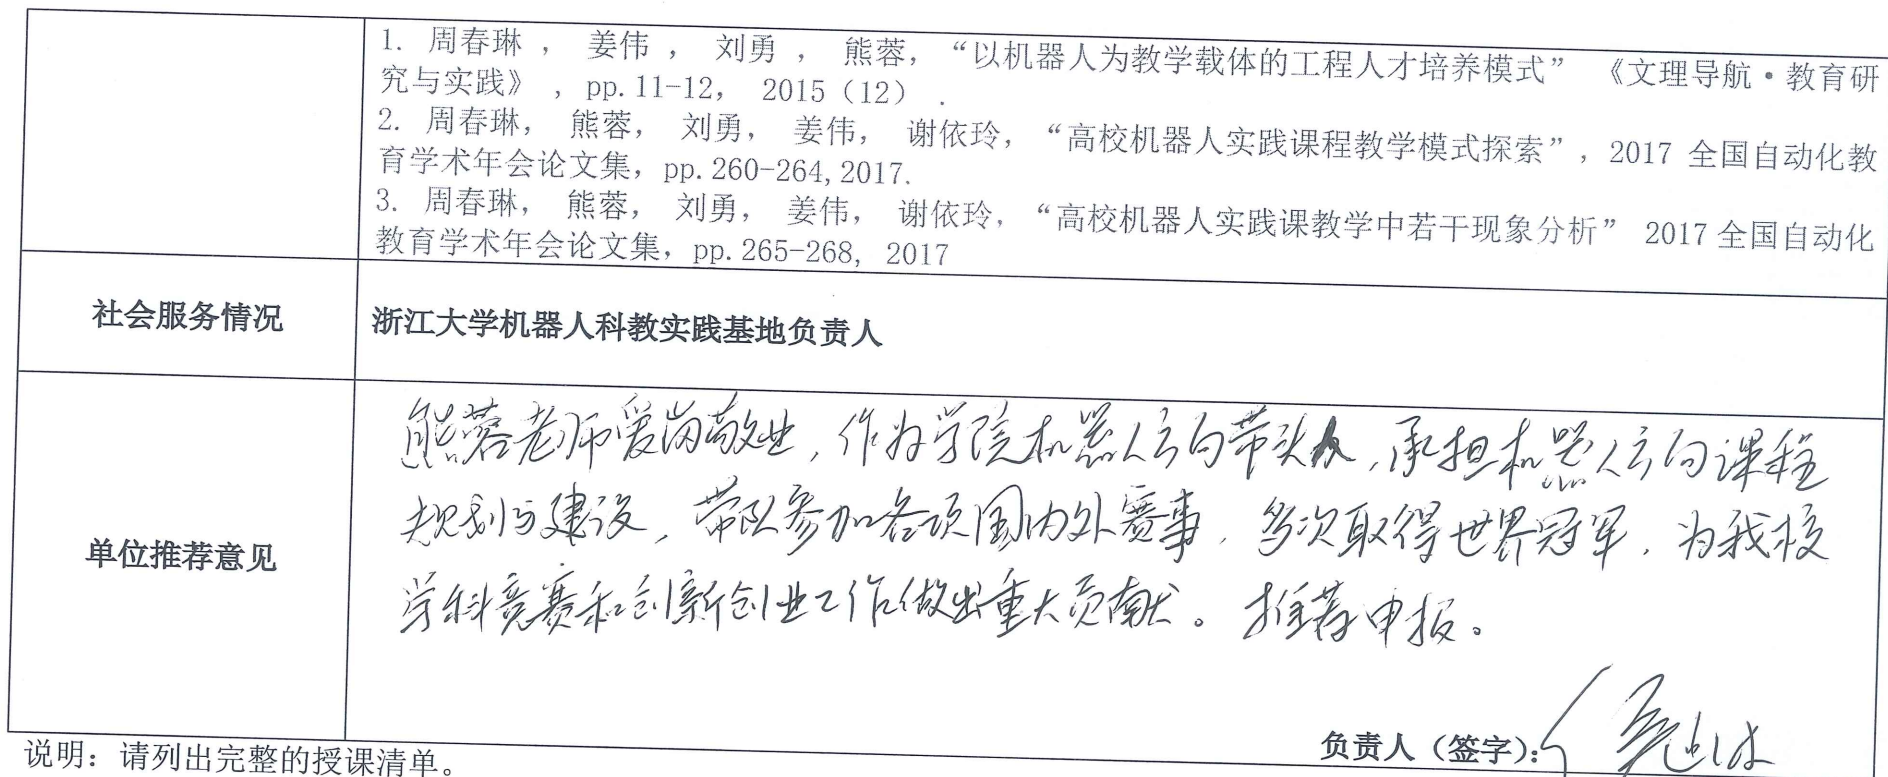 1. 周春琳 ， 姜伟 ， 刘勇 ， 熊蓉，“以机器人为教学载体的工程人才培养模式” 《文理导航·教育研
究与实践》 ，pp.11-12， 2015（12） .
2. 周春琳， 熊蓉， 刘勇， 姜伟， 谢依玲，“高校机器人实践课程教学模式探索”，2017 全国自动化教
育学术年会论文集，pp.260-264,2017.
3. 周春琳， 熊蓉， 刘勇， 姜伟， 谢依玲，“高校机器人实践课教学中若干现象分析” 2017 全国自动化
教育学术年会论文集，pp.265-268, 2017
社会服务情况
浙江大学机器人科教实践基地负责人
单位推荐意见
熊蓉老师爱岗敬业，作为学院机器人方向带头人，承担机器人方向课程
规划与建设，带队参加各项国内外赛事，多次取得世界冠军，为我校
学科竞赛和创新创业工作做出重大贡献。推荐申报。
负责人（签字）：
说明：请列出完整的授课清单。